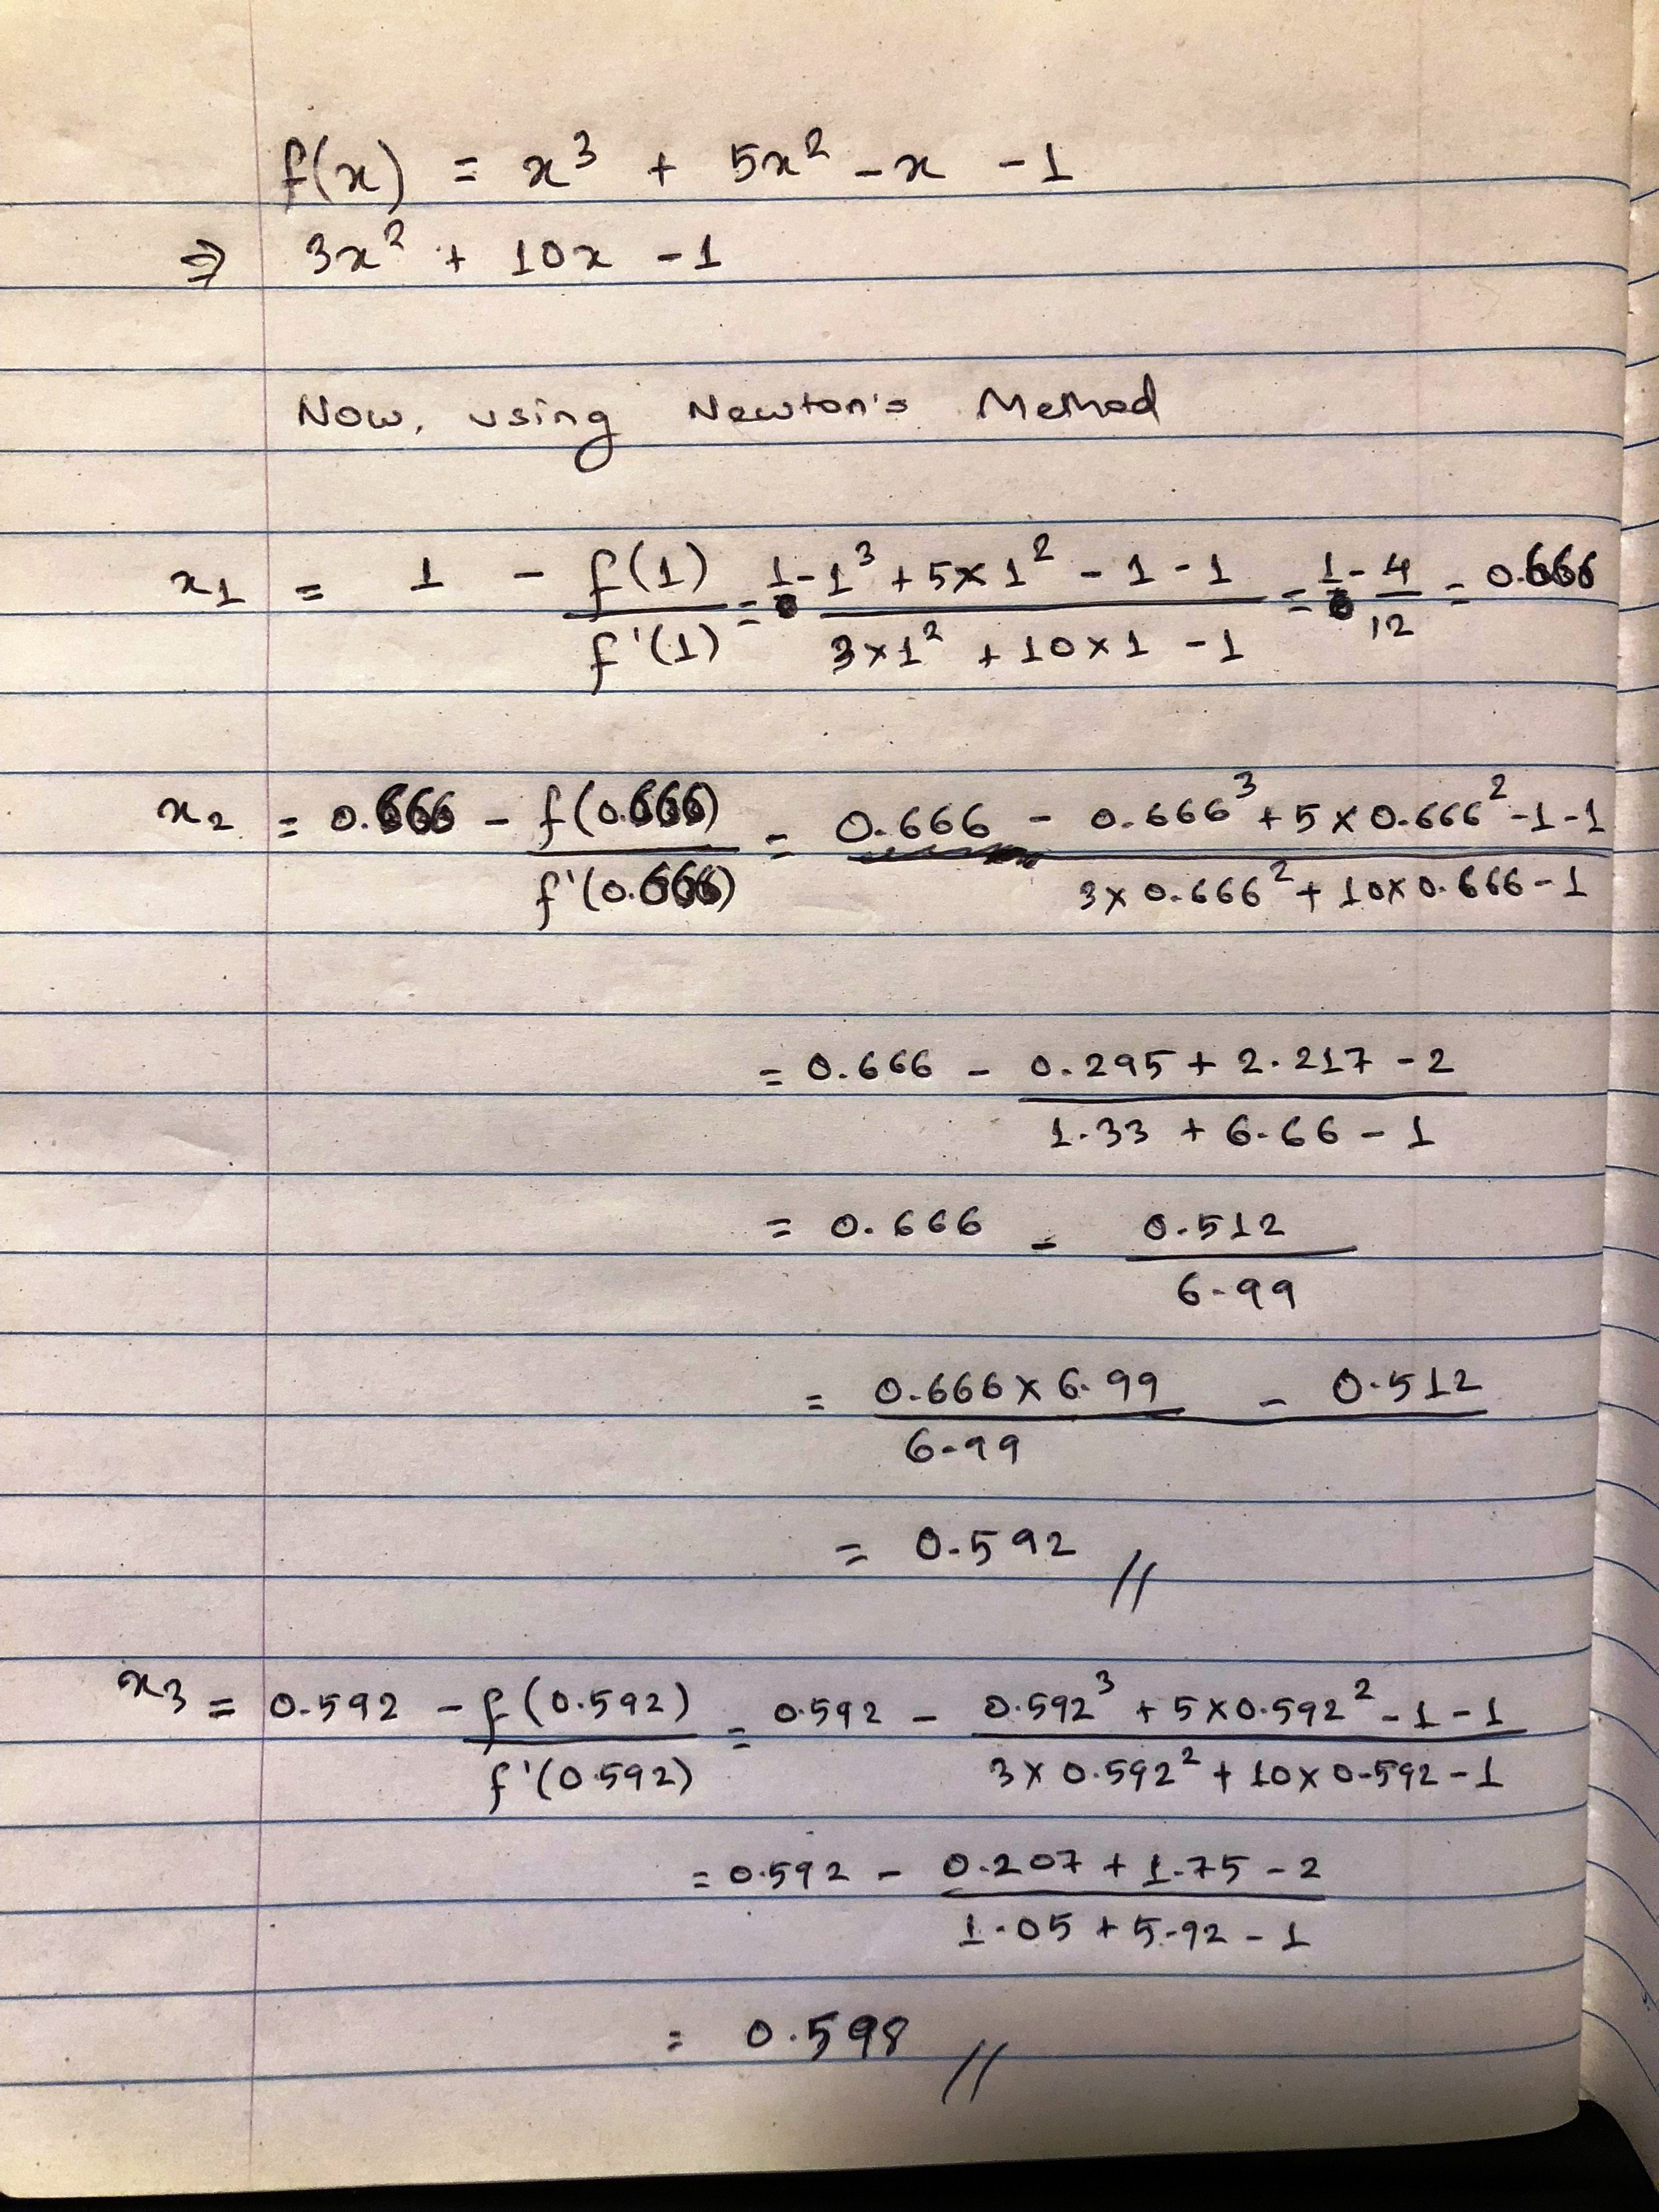 f(x) = x³ + 5x² - x - 1
⇒ 3x² + 10x - 1
Now, using Newton's Method
x₁ = 1 - f(1)/f'(1) = 1 - (1³ + 5×1² - 1 - 1)/(3×1² + 10×1 - 1) = 1 - 4/12 = 0.666
x₂ = 0.666 - f(0.666)/f'(0.666) = 0.666 - (0.666³ + 5×0.666² - 1 - 1)/(3×0.666² + 10×0.666 - 1)
= 0.666 - (0.295 + 2.217 - 2)/(1.33 + 6.66 - 1)
= 0.666 - 0.512/6.99
= (0.666×6.99 - 0.512)/6.99
= 0.592 //
x₃ = 0.592 - f(0.592)/f'(0.592) = 0.592 - (0.592³ + 5×0.592² - 1 - 1)/(3×0.592² + 10×0.592 - 1)
= 0.592 - (0.207 + 1.75 - 2)/(1.05 + 5.92 - 1)
= 0.598 //